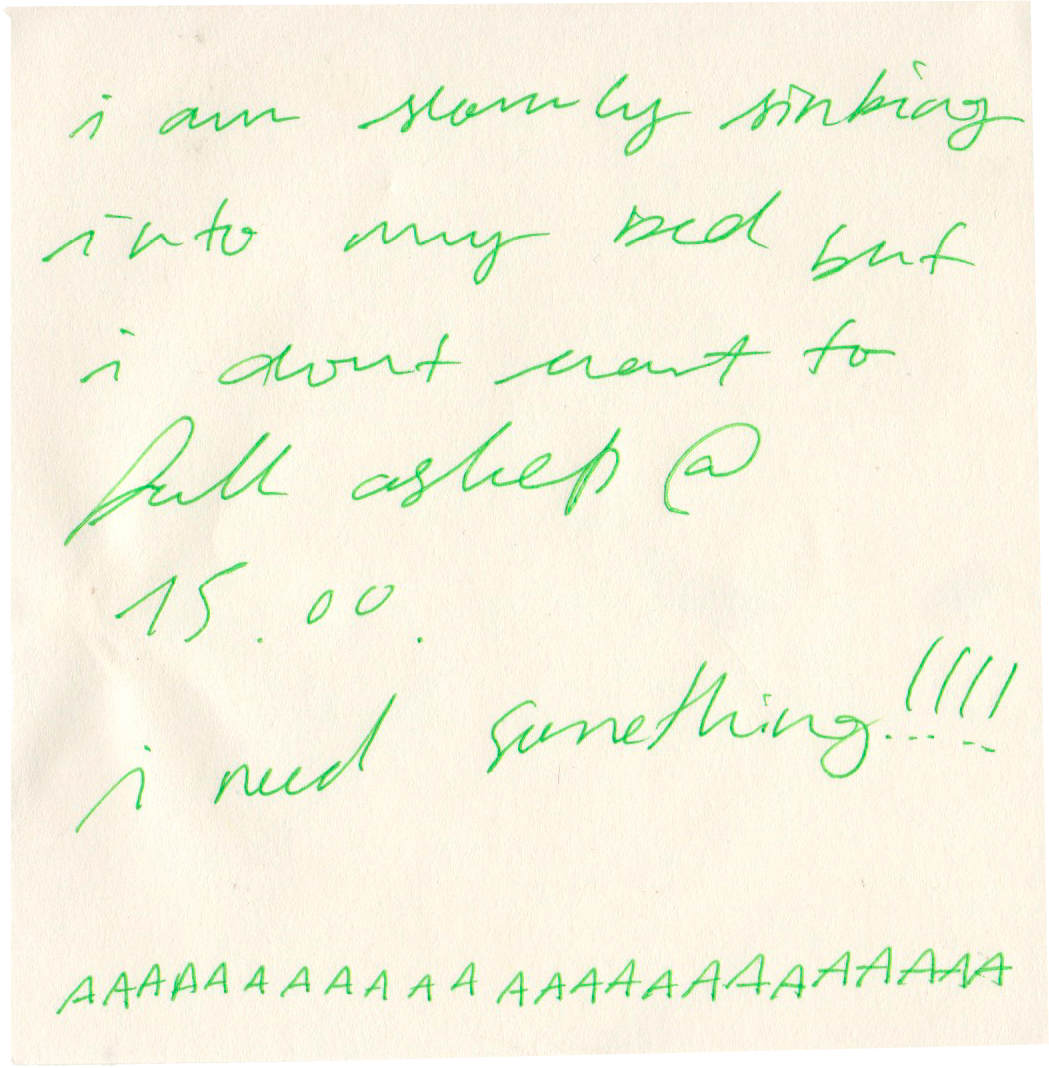 i am slowly sinking
into my bed but
i dont want to
fall asleep @
15.00.
i need something!!!!
AAAAAAAAAAAAAAAAAAAAAAAA